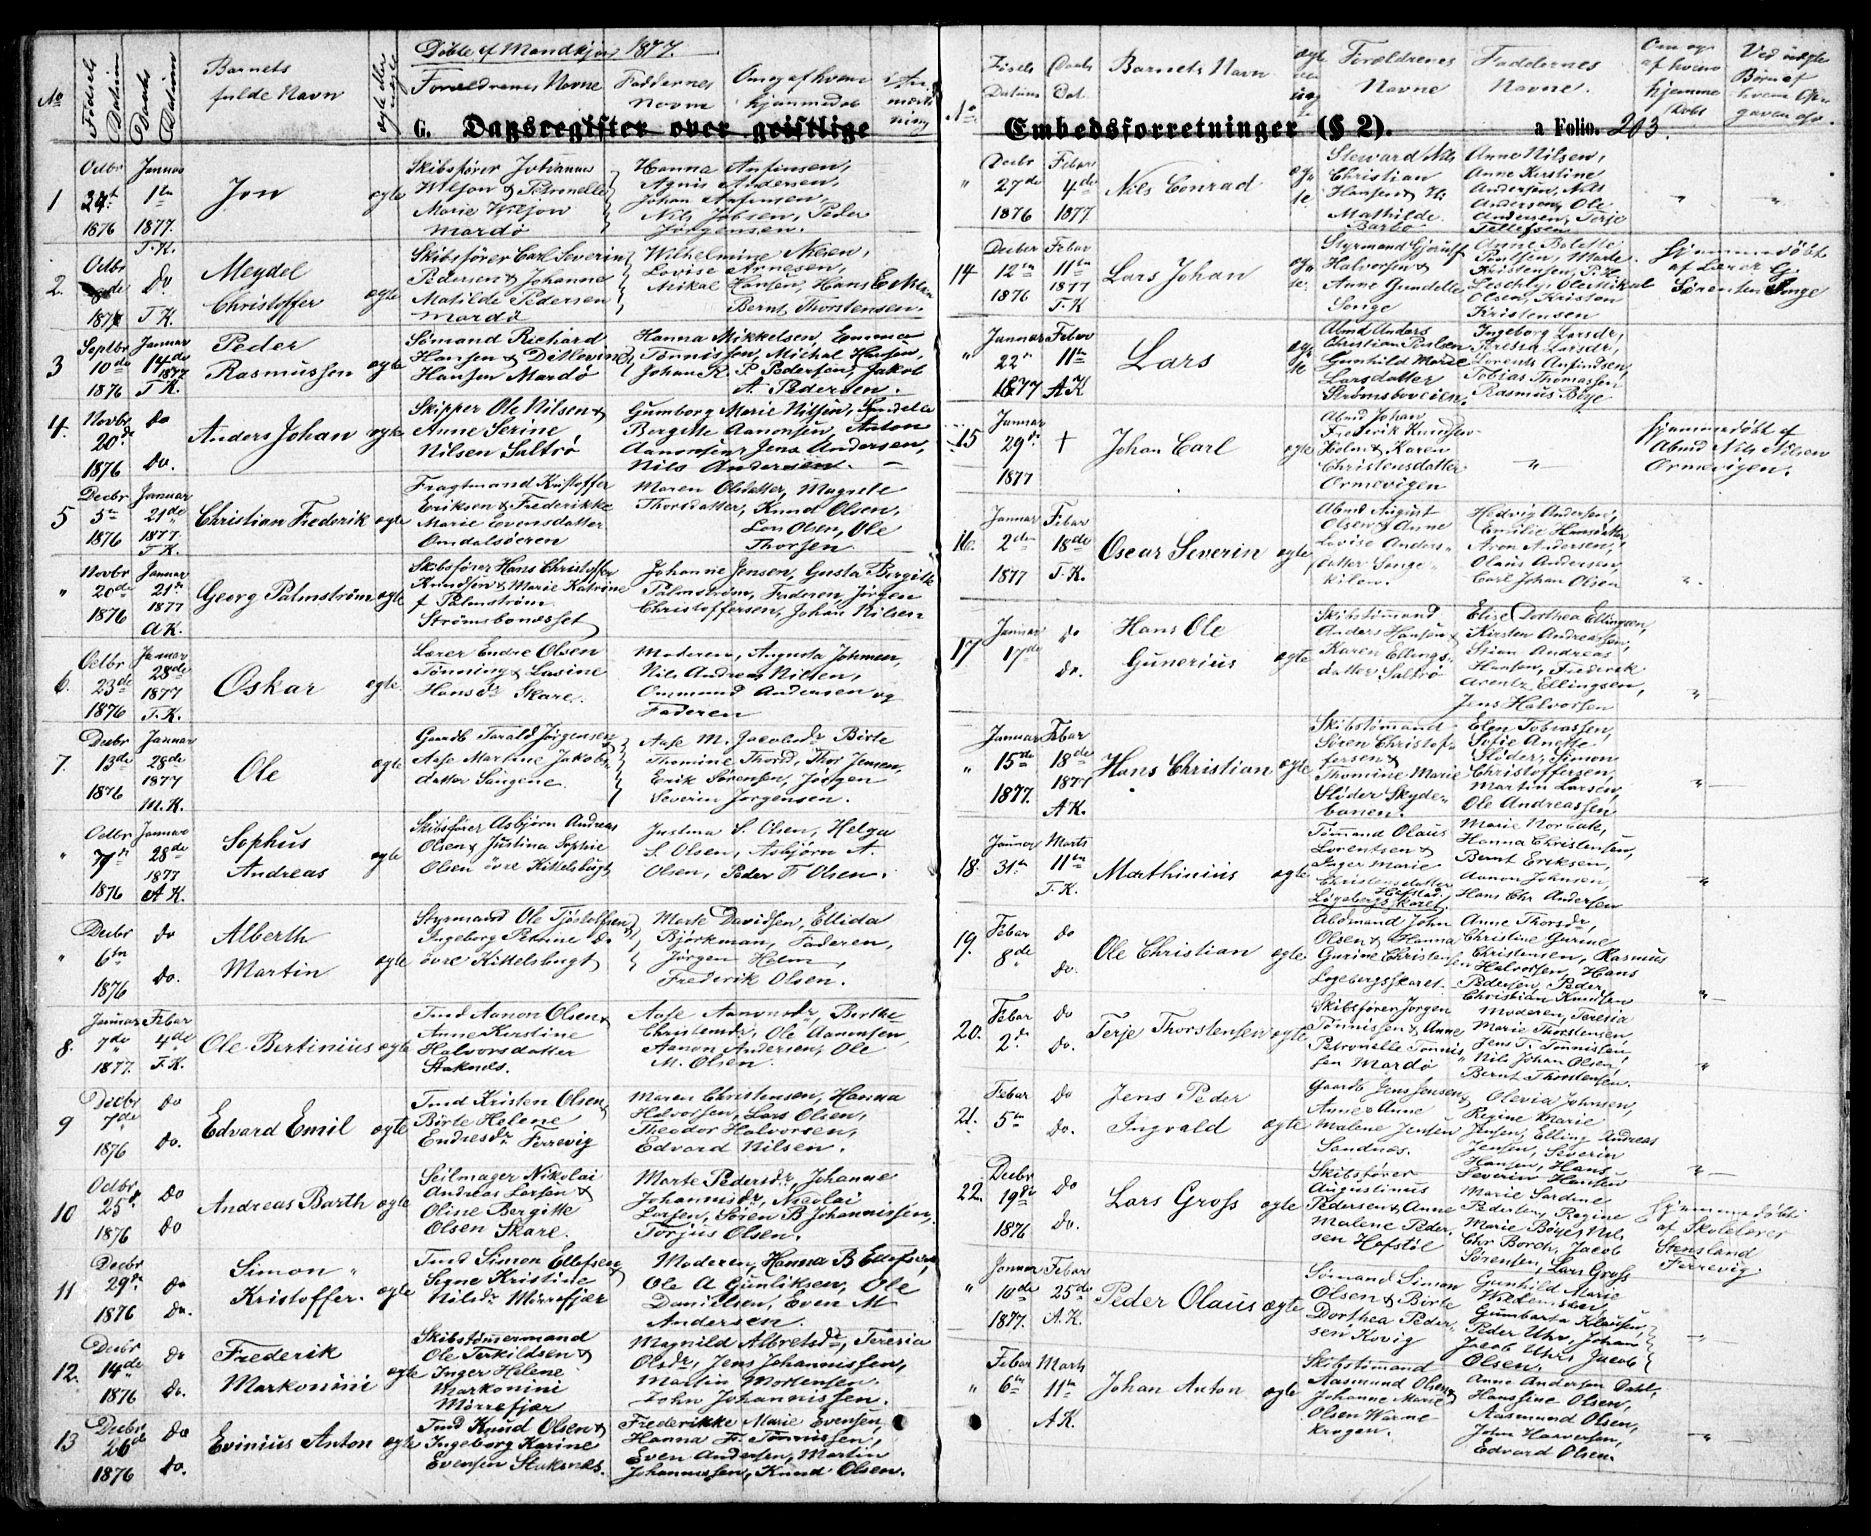 Døbte af Mandkjøn 1877.
No
Fødsels Datum
Daabs Datum
Barnets fulde Navn
ægte eller uægte
Forældrenes Navne
Faddernes Navne
Om og af hvem hjemmedøbt
Anmærkning
G. Dagsregister over geistlige
1
Octbr
1876
Januar
1te
1877.
T.K.
Jon
ægte
Skibsfører Johannes
Marie Wilson
Mardø
Hanna Anfinsen,
Agnis Andersen,
Johan Anfinsen,
Nils Jobsen, Peder
Jørgensen.
2.
Octbr
Do
T.K.
Meydel
Christoffer
ægte
Skibsfører Carl Severin
Pedersen & Johanne
Matilde Pedersen
Mardø
Wilhelmine Nilsen,
Lovise Arnesen,
Mikal Hansen, Hans E Nilsen
Bernt Thorstensen.
3
Septbr
10de
1876
Januar
14de
1877
T.K.
Peder
Rasmussen
ægte
Sømand Richard
Hansen & Ditlevine
Hansen Mardø
Hanna Mikkelsen, Emma
Tønnissen, Michal Hansen,
Johan R. P Pedersen, Jakob
A. Pedersen.
4.
Novbr
20de
1876
Do
Do.
Anders Johan
ægte
Skipper Ole Nilsen &
Anne Serine
Nilsen Saltrø
Gumborg Marie Nilsen,
Bergitte Aanonsen, Anton
Aanonsen, Jens Andersen,
Nils Andersen.
5
Decbr
5te
1876
Januar
21de
1877.
T.K.
Christian Frederik
ægte
Fragtmand Kristoffer
Eriksen & Frederikke
Marie Evensdatter
Omdalsøeren
Maren Olsdatter, Magnete
Thorsdatter, Knud Olsen,
Lars Olsen, Ole
Thorsen.
"
Novbr
20de
1876
Januar
21de
1877
A.K.
Georg Palmstrøm
ægte
Skibsfører Hans Christoffer
Knudsen & Marie Katrine
f Palmstrøm
Strømsbonesset
Johanne Jensen, Gusta Bergitte
Palmstrøm, Faderen, Jørgen
Christoffersen, Johan Nilsen
6.
Octbr
23de
1876
Januar
28de
1877
T.K.
Oskar
ægte
Lærer Endre Olsen
Tønning & Lasine
Hansdr Skare.
Moderen, Augusta Johnsen,
Nils Andreas Nilsen,
Ommund Andersen og
Faderen
7.
Decbr
13de
1876
Januar
28de
1877
M.K.
Ole
ægte
Gaardb Tarald Jørgensen
Aase Martine Jakobs
datter Longene
Aase M. Jacobsdr Birte
Thomine Thorsd, Thor Jensen,
Erik Sørensen, Jørgen
Severin Jørgensen.
"
Octbr
7de
1876
Januar
28de
1877
A.K.
Sophus
Andreas
ægte
Skibsfører Asbjørn Andreas
Olsen & Justina Sophie
Olsen øvre Kittelsbugt
Justina S. Olsen, Helga
S. Olsen, Asbjørn A.
Olsen, Peder T Olsen.
"
Decbr
6te
1876
Do
Do.
Alberth
Martin
ægte
Styrmand Ole Tjøstolfsen &
Ingeborg Petrine Do
øvre Kittelsbugt
Marte Davidsen, Ellida
Björkman, Faderen,
Jørgen Holm,
Frederik Olsen.
8.
Januar
7de
1877.
Febar
4de
T.K.
Ole Bertinius
ægte
Tmd Aanon Olsen &
Anne Kirstine
Halvorsdatter
Staknes.
Aase Aanonsdr, Birthe
Christensdr, Ole Aanonsen
Aanon Andersen, Ole
M. Olsen.
9
Decbr
7de
1876
Do
Do.
Edvard Emil
ægte
Tmd Kristen Olsen &
Börte Helene
Endresdr Ferrevig
Maren Christensen, Hanna
Halvorsen, Lars Olsen,
Theodor Halvorsen,
Edvard Nilsen.
10
Octbr
25de
1876
Do
Do
Andreas Barth
ægte
Seilmager Nikolai
Andreas Larsen &
Oline Bergitte
Olsen Skare.
Marte Pedersdr, Johanne
Johannisdr, Nicolai
Larsen, Søren B Johannissen,
Torjus Olsen.
11
Decbr
29de
1876
Do
Do.
Simon
Kristoffer.
ægte
Tmd Simon Ellefsen &
Signe Kristine
Nilsdr Mörrefjær
Moderen, Hanna B Ellefsen,
Ole A Gunliksen, Ole
Danielsen, Even M
Andersen.
12.
Decbr
14de
1876
Do
Do.
Frederik
Markonini
ægte
Skibstømermand
Ole Terkildsen &
Inger Helene
Markonini
Mørrefjær
Magnild Albretsdr, Teresia
Olsdr, Jens Johannissen,
Martin Mortensen.
John Johannissen.
13
Decbr
26de
1876
Do
Do.
Evinius Anton
ægte
Tmd Knud Olsen &
Ingeborg Karine
Evensen Staksnes.
Frederikke Marie Evensen,
Hanna F. Tønnissen,
Even Andersen, Martin
Johannissen, Knud Olsen.
No
Fødsels Datum
Daabs Dat.
Barnets Navn
Forældrenes Navne
Faddernes Navne.
Om og af hvem hjemmedøbt
Ved uægte Børn af hvem Opgaven er.
Embedsforretninger (§ 2).
a Folio. 203.
"
Decbr
27de
1876
Febar
4de
1877
Nils Conrad
ægte
Steward Nils
Christian
Hansen &
Mathilde
Barbo
Anne Nilsen,
Anne Kirstine
Andersen, Nils
Andersen, Ole
Andersen, Terje
Tellefsen
14
Decber
12te
1876
Febar
11te
1877
T.K
Lars Johan
ægte
Styrmand Gjerulf
Halvorsen &
Anne Gundelle
Songe
Anne Bolette
Paulsen, Marte
Kristensen, P.H.
Leschly, Ole Mikal
Olsen, Kristen
Kristensen
Hjemmedøbt
af Lærer G
Sørensen Songe
"
Januar
22de
1877
Febar
11te
A.K
Lars
ægte
Abmd Anders
Christian Poulsen
Gunhild Marie
Larsdatter
Strømsboveien
Ingeborg Larsdr,
Teresia Larsdr,
Lorents Anfindsen,
Tobias Thomassen
Rasmus Bøye
15
Januar
29de
1877
+
Johan Carl
ægte
Abmd Johan
Frederik
Holm & Karen
Christensdatter
Ormevigen
Hjemmedøbt af
Abmd Nils Nilsen
Ormevigen.
16.
Januar
2den
1877
Febar
18de
T.K.
Oscar Severin
ægte
Abmd August
Olsen & Anne
Lovise Anders
datter Songe
kilen.
Hedvig Andersen,
Emilie Hansdatter,
Aron Andersen,
Olaus Andersen
Carl Johan Olsen
17
Januar
17de
Do
Do.
Hans Ole
Gunerius
ægte
Skibstømmand
Anders Hansen &
Karen Ellings
datter Saltrø
Elise Dorthea Ellingsen,
Kirsten Andreassen,
Stian Andreas
Hansen, Frederik
Arentz Ellingsen,
Jens Halvorsen
"
Januar
15de
1877.
Febar
18de
1877
A.K.
Hans Christian
ægte
Skibstømmand
Søren Christof
fersen &
Thomine Marie
Sløder Skyde
banen.
Elen Tobiassen,
Sofie Anette
Sløder, Simon
Christoffersen,
Martin Larsen,
Ole Andreassen
18.
Januar
31te
Marts
11te
T.K.
Mathinius
ægte
Tømmand Olaus
Lorentsen &
Inger Marie
Christensdatter
Løgebergsskaret
Marie Norbak,
Hanna Christensen,
Bernt Eriksen,
Aanon Johnsen,
Hans Chr Andersen
19.
Febar
8de
Do
Do.
Ole Christian
ægte
Abdmand John
Olsen & Hanna
Gurine Christensen
Logebergsskaret.
Anne Thorsdr,
Christine Gurine
Christensen, Rasmus
Halvorsen, Hans
Pedersen, Peder
Christian Knudsen
20.
Febar
2de
Do
Do.
Terje Thorstensen
ægte
Skibsfører Jørgen
Tønnissen & Anne
Petronelle Tønnis
sen Mardø
Moderen, Teresia
Marie Thorstensen,
Jens T. Tønnissen,
Nils Johan Olsen,
Bernt Thorstensen.
21.
Febar
5te
Do
Do.
Jens Peder
Ingvald
ægte
Gaardb Jens Jensen &
Anne Anne
Malene Jensen
Sandnæs.
Olevia Johnsen,
Regine Marie
Jensen, Elling Andreas
Jensen, Severin
Hansen, Hans
Severin Hansen
22.
Decbr
19de
1876
Do
Do.
Lars Gross
ægte
Skibsfører
Augustinus
Pedersen & Anne
Malene Peder
sen Hofstøl
Marie Sardine
Pedersen, Regine
Marie Bøye, Nils
Chr Borch, Jacob
Sørensen, Lars Gross
Hjemmedøbt
af Skolelærer
Stensland
Ferrevig.
"
Januar
10de
1877.
Febar
25de
A.K.
Peder Olaus
ægte
Sømand Simon
Olsen & Børte
Dorthea Peder
sen Kovig
Gunhild Marie
Willemsen,
Gumbarta Klausen,
Peder Uhr, Johan
Jacob Uhr, Jacob
Olsen.
"
Febar
6te
Marts
11te
A.K.
Johan Anton
ægte
Skibstømmand
Aasmund Olsen &
Johanne Marie
Olsen Warme
krogen.
Anne Andersen Dahl,
Hansine Olsen,
Aasmund Olsen,
John Halvorsen,
Edvard Olsen.